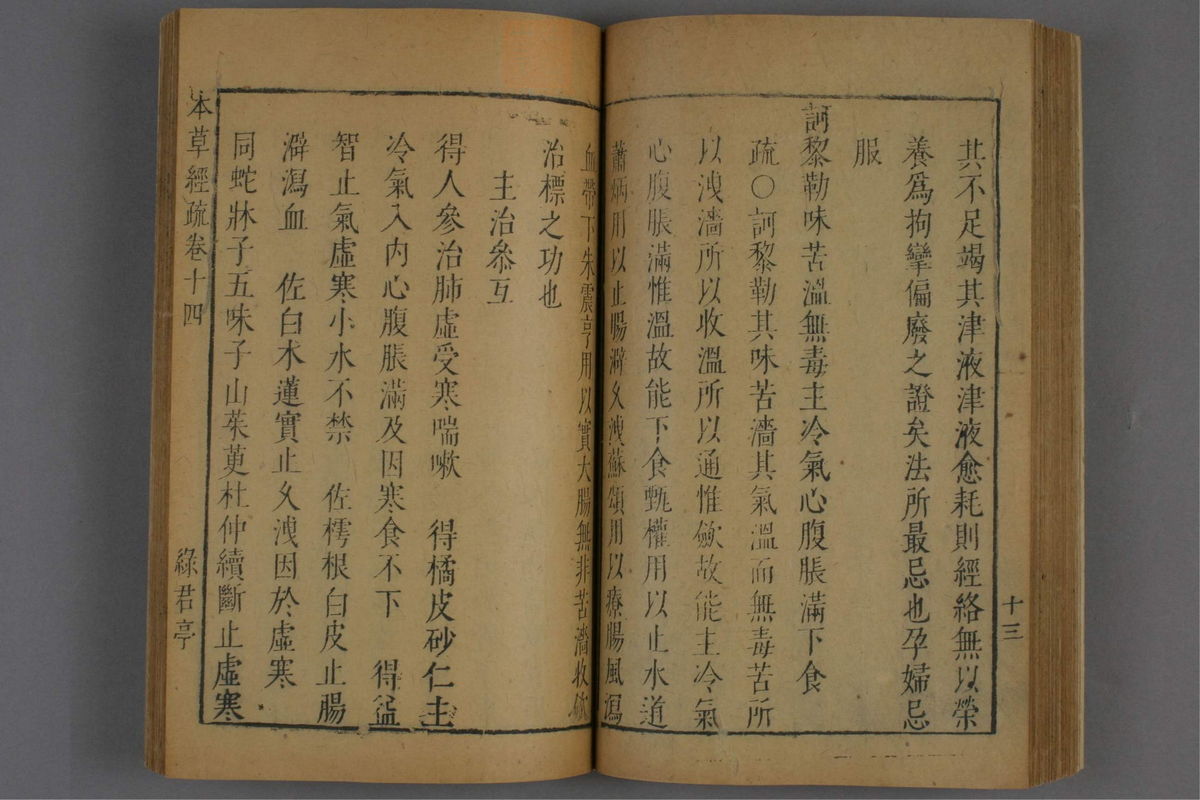 十三
其不足竭其津液津液愈耗則經絡無以榮
養爲拘攣偏廢之證矣法所最忌也孕婦忌
服
訶黎勒味苦溫無毒主冷氣心腹脹滿下食
疏〇訶黎勒其味苦濇其氣溫而無毒苦所
以洩濇所以收溫所以通惟斂故能主冷氣
心腹脹滿惟溫故能下食甄權用以止水道
蕭炳用以止腸澼久洩蘇頌用以療腸風瀉
血帶下朱震亨用以實大腸無非苦濇收斂
治標之功也
主治參互
得人參治肺虛受寒喘嗽 得橘皮砂仁主
冷氣入內心腹脹滿及因寒食不下 得益
智止氣虛寒小水不禁 佐樗根白皮止腸
澼瀉血 佐白朮蓮實止久洩因於虛寒
同蛇牀子五味子山茱萸杜仲續斷止虛寒
本草經疏卷十四 綠君亭